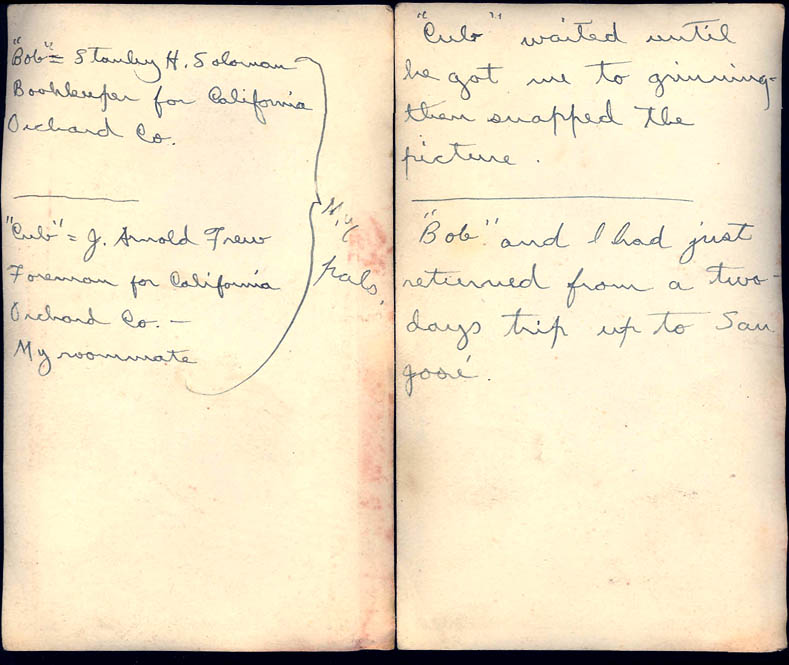 "Bob" = Stanley H. Soloman
Bookkeeper for California
Orchard Co.
"Cub" = J. Arnold Frew
Foreman for California
Orchard Co. —
My roommate
My
pals.
"Cub" waited until
he got me to grinning-
then snapped the
picture.
"Bob" and I had just
returned from a two-
days trip up to San
José.